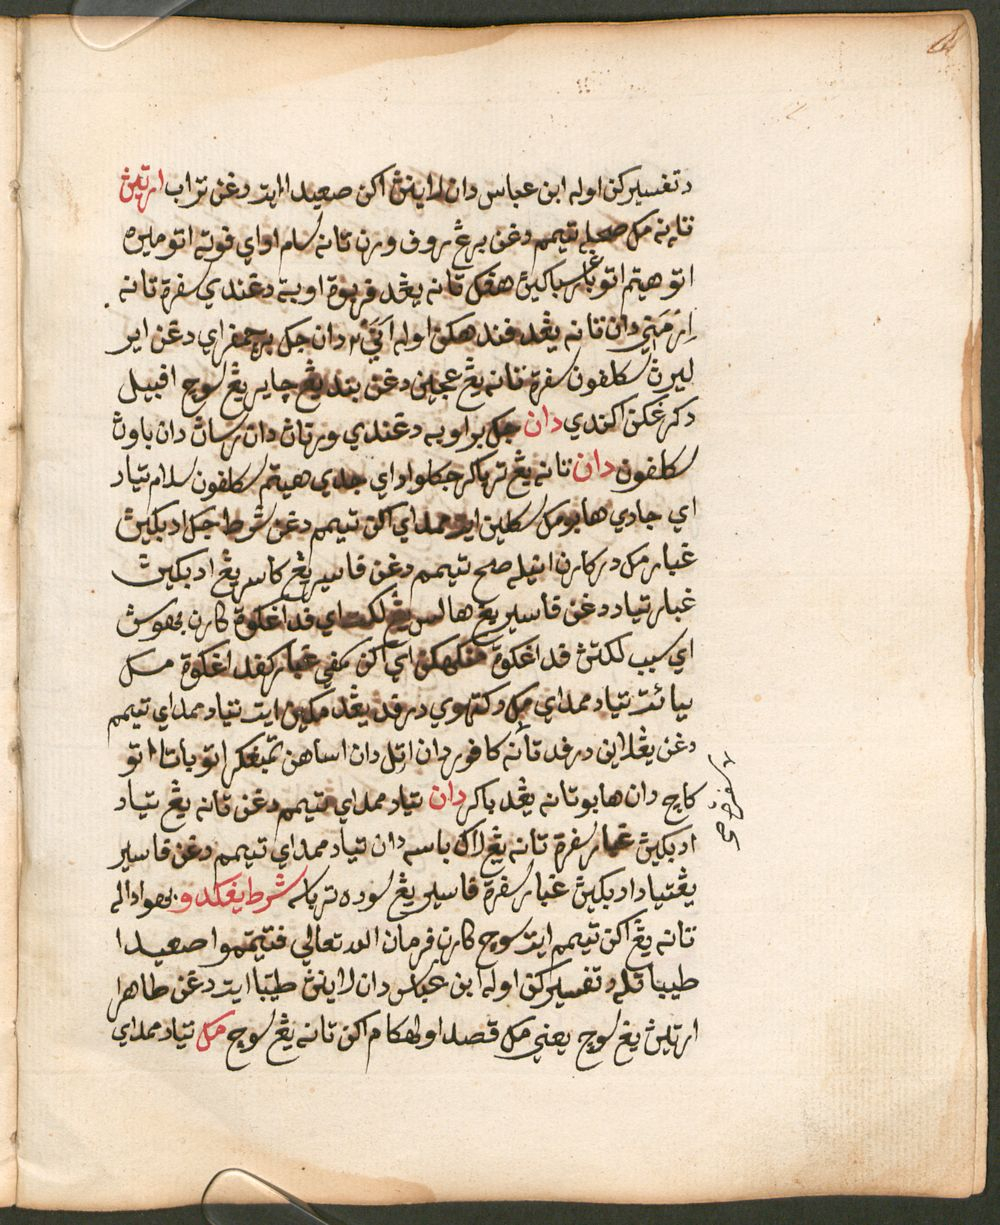 دتفسيركن اوله ابن عباس دان لاينث اكن صعيدا ايت دغن تراب ارتيث
تانه مك صحله تيمم دغن برغ روف ورن تانه سام اواي فوته اتو ميره
اتو هيتم اتو باكيث هڠكل تانه يڠد فربوة اوبة دڠندي سفرة تانه
ارمني دان تانه يڠد فندهكن اوله دان جك برچمفراي دڠن اير
ليرث سكلفون سفرة تانه يڠ عجين دڠن بند يڠ چاير يڠ سوچ افبيل
دكرڠكن اكندي دان جك براوبه دڠندي ورنان دان رسان دان باون
سكلفون دان تانه يڠ ترباكر جكلو اداي جدي هيتم سكلفون سلام تياد
اي جادي هابو مك سكلين ايت ممداي اكن تيمم دڠن شرط جك اد بكيث
غبار مك دركارن انيله صح تيمم دڠن فاسير يڠ كاسر يڠ اد بكيث
غبار تياد دڠن فاسير يڠ هالس يڠ لكت اي فد اڠكوة كارن بهوس
اي سبب لكتن فد اڠكوة منكهكن اي اكن سمفي غبار كفد اڠكوة مك
بيا ئت تياد ممداي مك دكتهوي درفد يڠد مكين ايت تياد ممداي تيمم
دڠن يڠلاين درفد تانه كافور دان اتل دان اساهن تمبڠكر اتو باتا اتو
كاچ دان هابو تانه يڠد باكر دان تياد ممداي تيمم دڠن تانه يڠ تياد
اد بكيث غبار سفرة تانه يڠ لاڬ باسه دان تياد ممداي تيمم دڠن فاسير
يڠتياد اد بكيث غبار سفرة فاسير يڠ سوده ترباسه شرط يڠكدو بهوا داله
تانه يڠ اكن تيمم ايت سوچ كارن فرمان الله تعالي فتيمموا صعيدا
طيبا تله دتفسيركن اوله ابن عباس دان لاينث طيبا ايت دڠن طاهرا
ارتيث يڠ سوچ يعني مك قصد اولهكام اكن تانه يڠ سوچ مك تياد ممداي